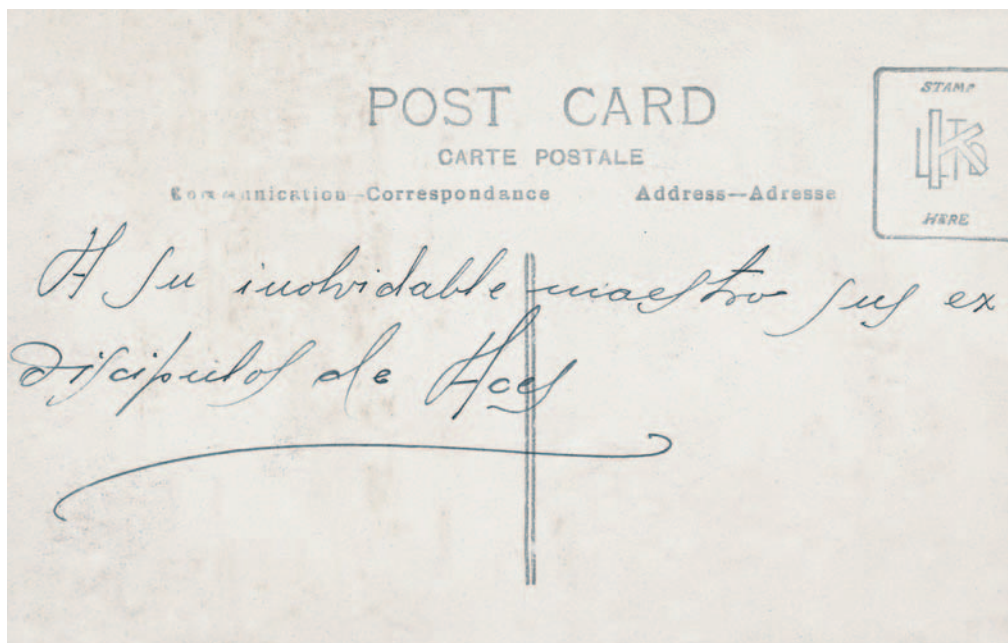 POST CARD
CARTE POSTALE
Communication—Correspondance Address—Adresse
STAMP
HERE
A su inolvidable maestro sus ex
discipulos de Aces